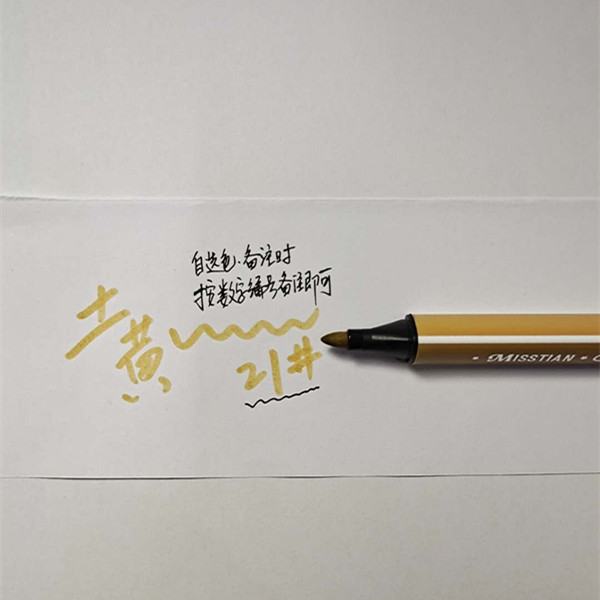 自选色.备注时
按数字编号备注即可
土黄
21#
• MISSTIAN •